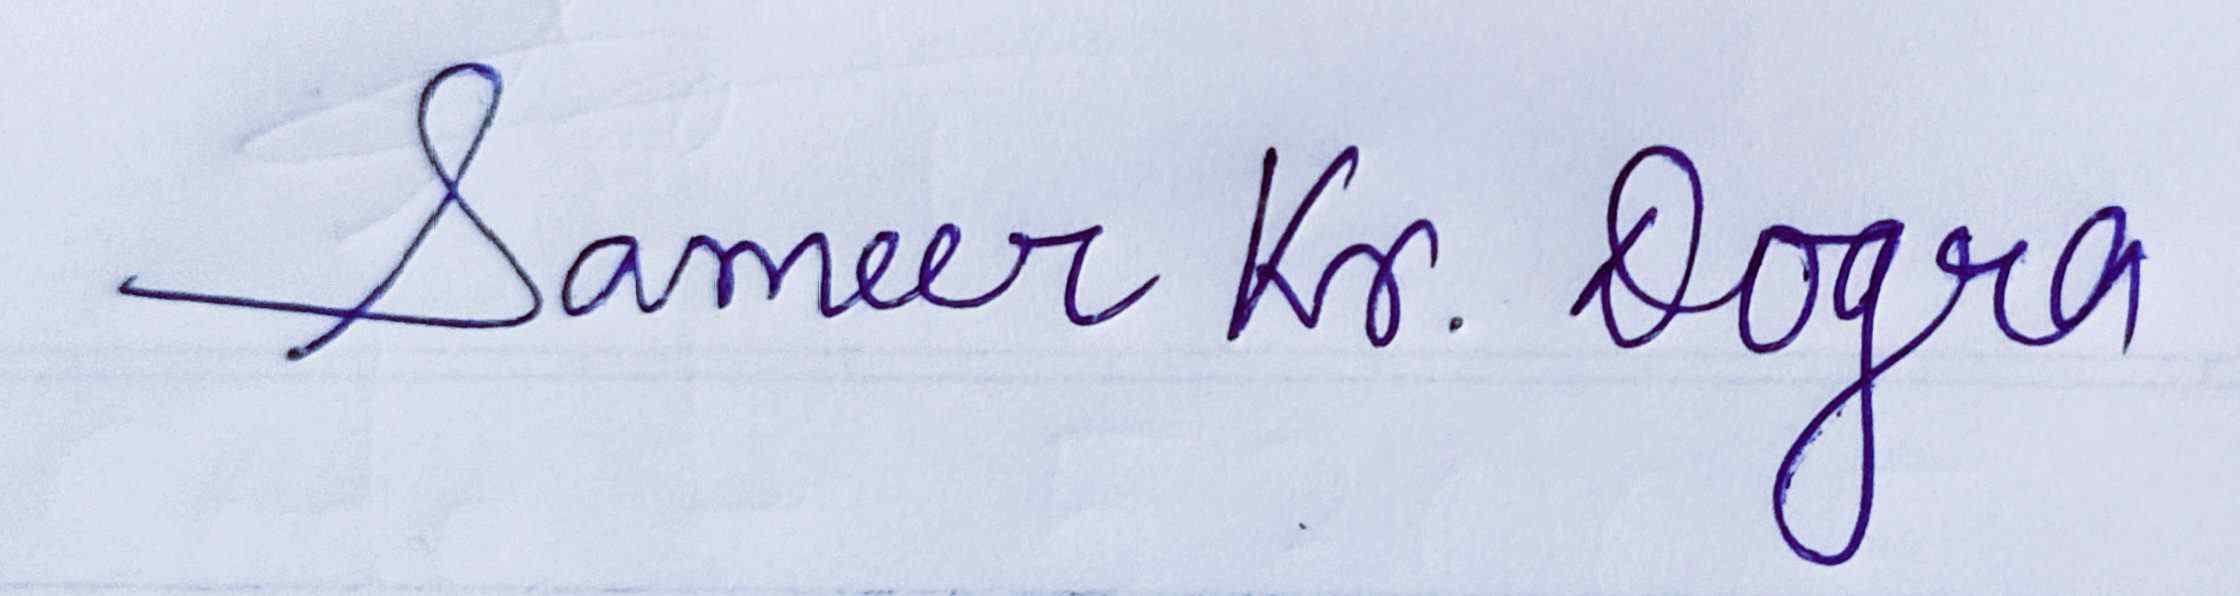 Sameer Kr. Dogra